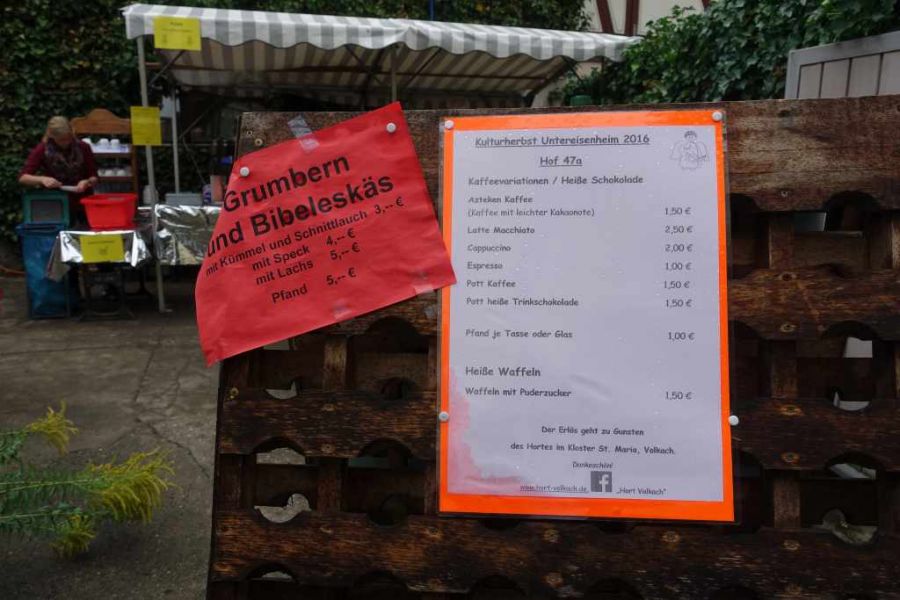 Grumbern
und Bibeleskäs
mit Kümmel und Schnittlauch 3,-- €
mit Speck 4,-- €
mit Lachs 5,-- €
Pfand 5,-- €
Kulturherbst Untereisenheim 2016
Hof 47a
Kaffeevariationen / Heiße Schokolade
Azteken Kaffee
(Kaffee mit leichter Kakaonote) 1,50 €
Latte Macchiato 2,50 €
Cappuccino 2,00 €
Espresso 1,00 €
Pott Kaffee 1,50 €
Pott heiße Trinkschokolade 1,50 €
Pfand je Tasse oder Glas 1,00 €
Heiße Waffeln
Waffeln mit Puderzucker 1,50 €
Der Erlös geht zu Gunsten
des Hortes im Kloster St. Maria, Volkach.
Dankeschön!
www.hort-volkach.de f „Hort Volkach"